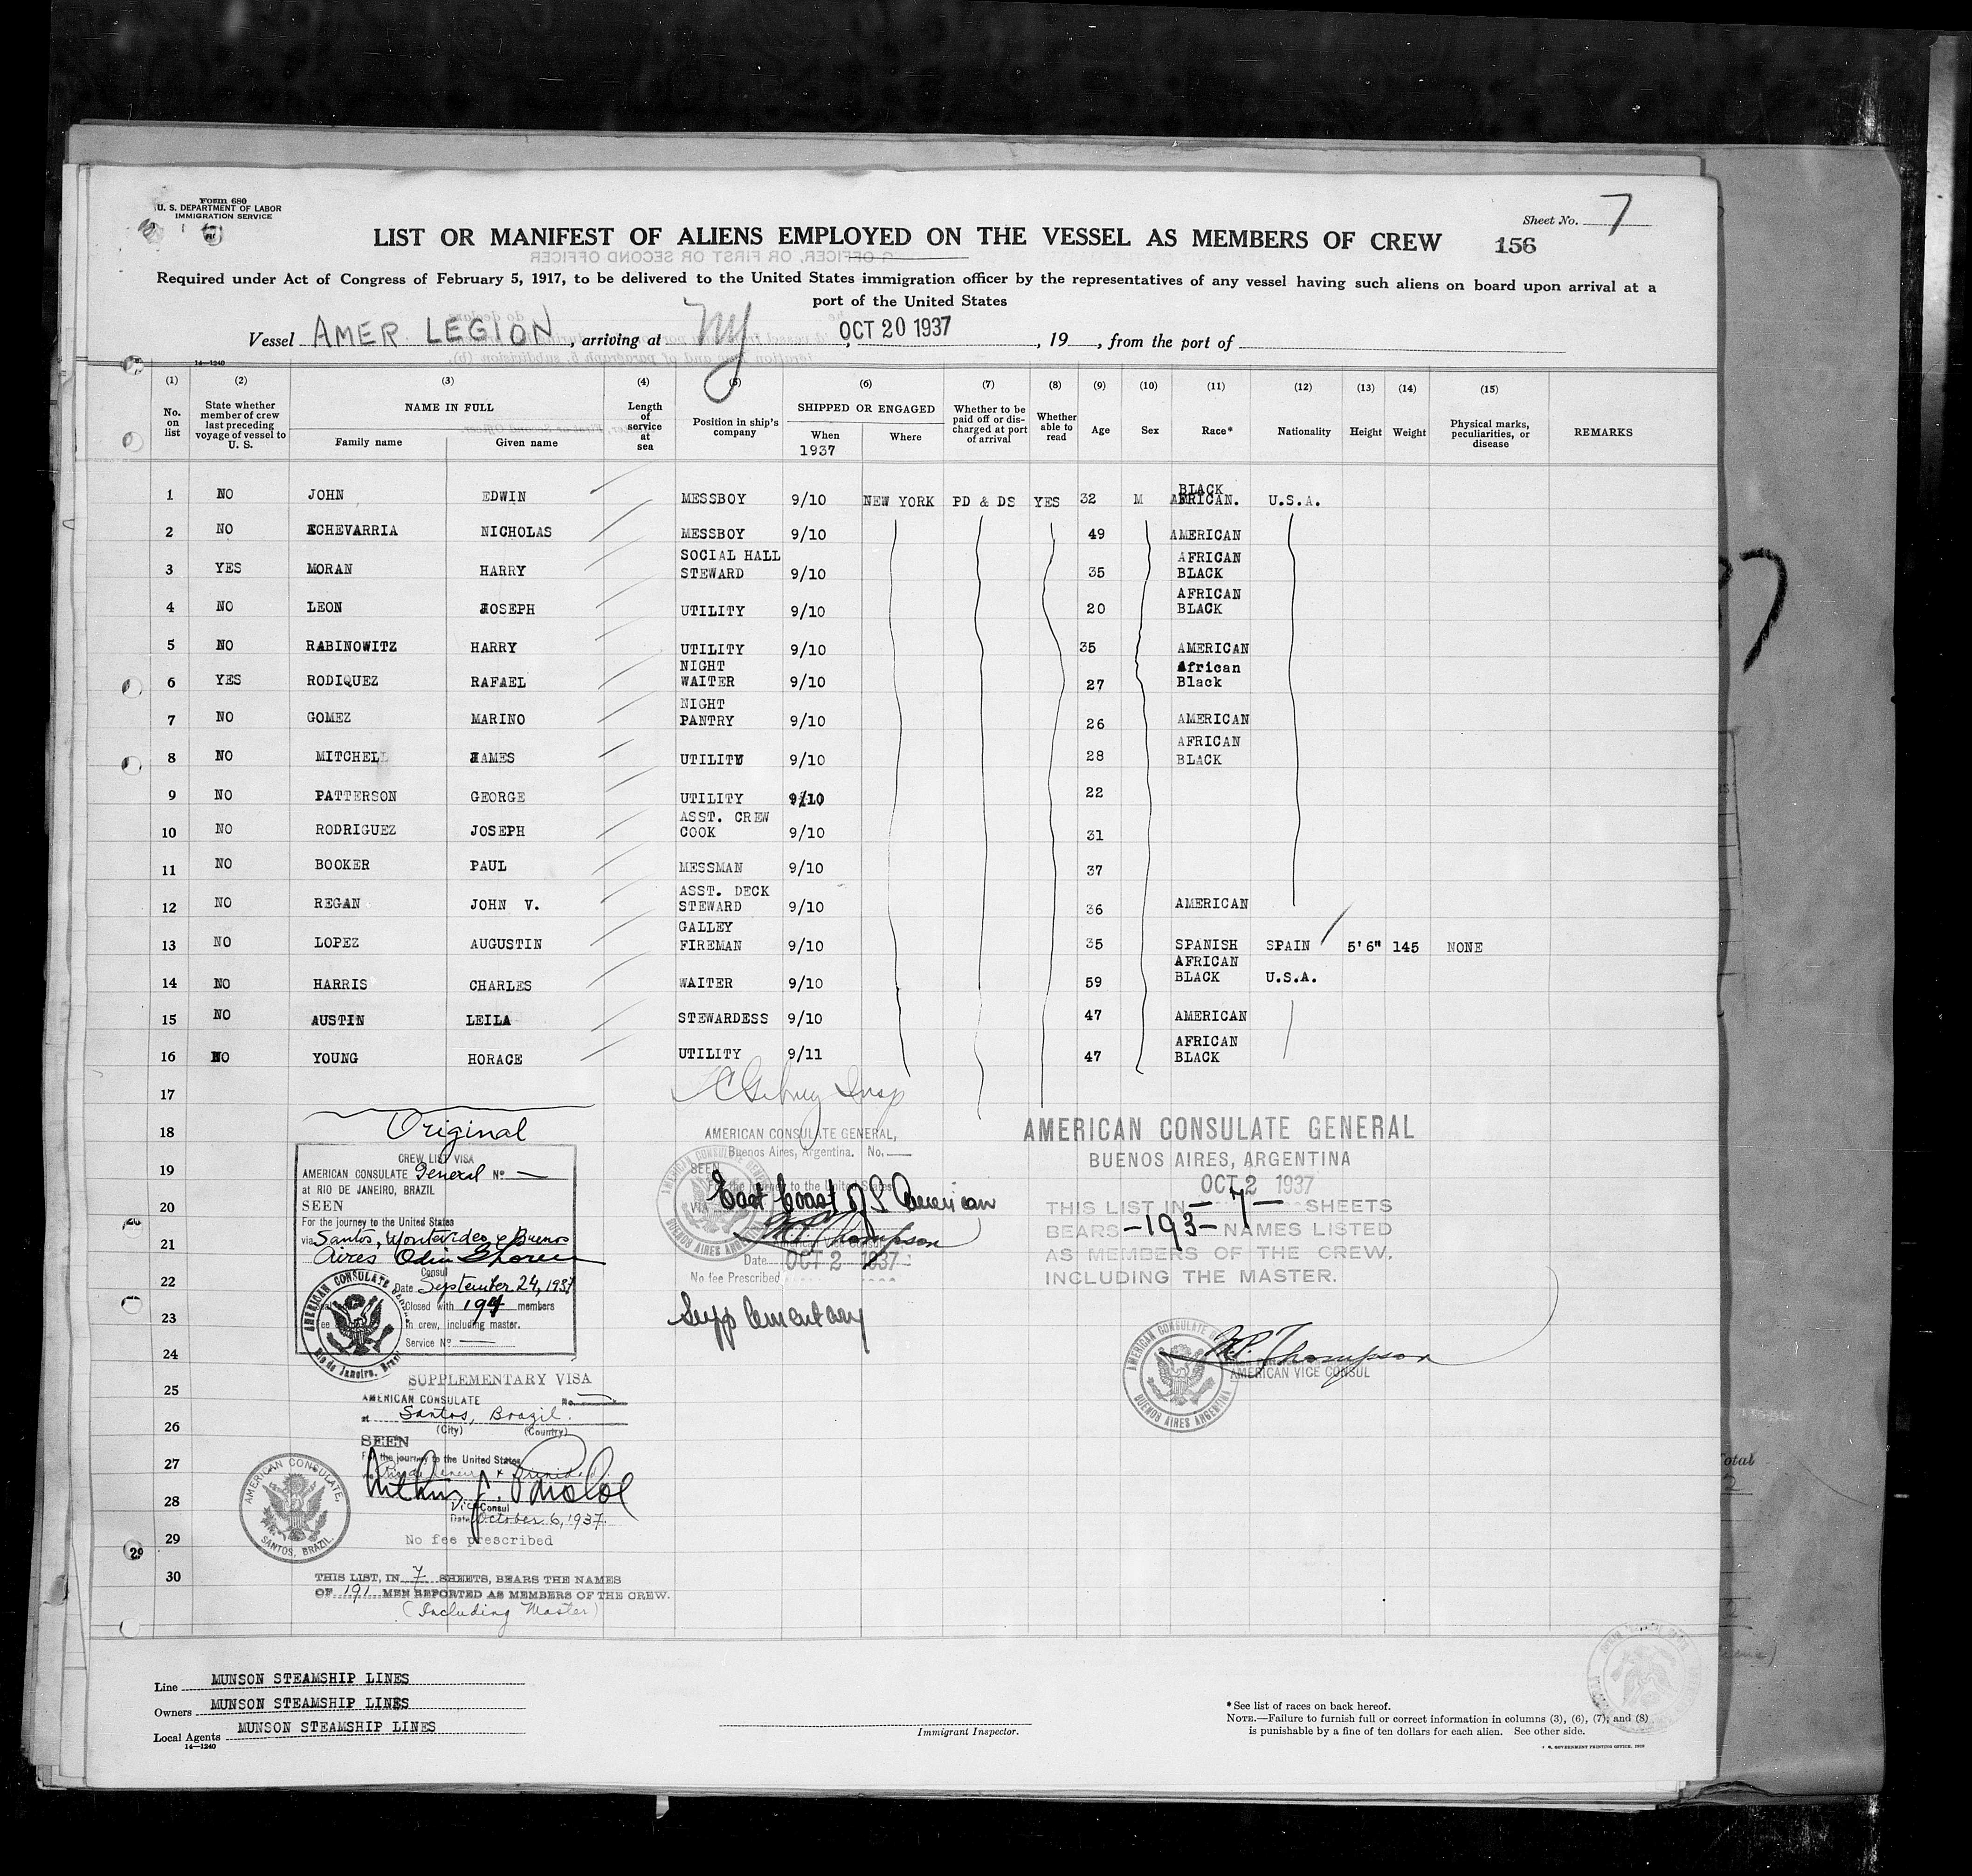 Form 680
U. S. DEPARTMENT OF LABOR
IMMIGRATION SERVICE
Sheet No. 7
LIST OR MANIFEST OF ALIENS EMPLOYED ON THE VESSEL AS MEMBERS OF CREW
156
Required under Act of Congress of February 5, 1917, to be delivered to the United States immigration officer by the representatives of any vessel having such aliens on board upon arrival at a
port of the United States
Vessel AMER. LEGION, arriving at NY, OCT 20 1937, 19, from the port of
14—1240
(1) (2) (3) (4) (5) (6) (7) (8) (9) (10) (11) (12) (13) (14) (15)
No. on list
State whether member of crew last preceding voyage of vessel to U. S.
NAME IN FULL
Family name Given name
Length of service at sea
Position in ship's company
SHIPPED OR ENGAGED
When 1937 Where
Whether to be paid off or discharged at port of arrival
Whether able to read
Age Sex Race* Nationality Height Weight
Physical marks, peculiarities, or disease
REMARKS
1 NO JOHN EDWIN MESSBOY 9/10 NEW YORK PD & DS YES 32 M BLACK AFRICAN. U.S.A.
2 NO ECHEVARRIA NICHOLAS MESSBOY 9/10 49 AMERICAN
3 YES MORAN HARRY SOCIAL HALL STEWARD 9/10 35 AFRICAN BLACK
4 NO LEON JOSEPH UTILITY 9/10 20 AFRICAN BLACK
5 NO RABINOWITZ HARRY UTILITY 9/10 35 AMERICAN
6 YES RODIQUEZ RAFAEL NIGHT WAITER 9/10 27 African Black
7 NO GOMEZ MARINO NIGHT PANTRY 9/10 26 AMERICAN
8 NO MITCHELL JAMES UTILITY 9/10 28 AFRICAN BLACK
9 NO PATTERSON GEORGE UTILITY 9/10 22
10 NO RODRIGUEZ JOSEPH ASST. CREW COOK 9/10 31
11 NO BOOKER PAUL MESSMAN 9/10 37
12 NO REGAN JOHN V. ASST. DECK STEWARD 9/10 36 AMERICAN
13 NO LOPEZ AUGUSTIN GALLEY FIREMAN 9/10 35 SPANISH SPAIN 5'6" 145 NONE
14 NO HARRIS CHARLES WAITER 9/10 59 AFRICAN BLACK U.S.A.
15 NO AUSTIN LEILA STEWARDESS 9/10 47 AMERICAN
16 NO YOUNG HORACE UTILITY 9/11 47 AFRICAN BLACK
17
18
19
20
21
22
23
24
25
26
27
28
29
30
Insp
Original
CREW LIST VISA
AMERICAN CONSULATE General No —
at RIO DE JANEIRO, BRAZIL
SEEN
For the journey to the United States
via Santos, Montevideo, e Buenos
Aires
Consul
Date September 24, 1937
Closed with 194 members
in crew, including master.
Service No
AMERICAN CONSULATE GENERAL
Rio de Janeiro, Brazil
SUPPLEMENTARY VISA
AMERICAN CONSULATE No.
at Santos, Brazil.
(City) (Country)
SEEN
For the journey to the United States
Vice Consul
Date October 6, 1937.
No fee prescribed
AMERICAN CONSULATE,
SANTOS, BRAZIL.
THIS LIST, IN 7 SHEETS, BEARS THE NAMES
OF 191 MEN REPORTED AS MEMBERS OF THE CREW.
(Including Master)
AMERICAN CONSULATE GENERAL,
Buenos Aires, Argentina. No.
SEEN
For the journey to the United States
VIA East Coast of S American
M.P. Thompson
American Vice Consul
Date OCT 2 1937
No fee Prescribed
Supplementary
AMERICAN CONSULATE GENERAL
BUENOS AIRES, ARGENTINA
OCT 2 1937
THIS LIST IN — 7 — SHEETS
BEARS -193- NAMES LISTED
AS MEMBERS OF THE CREW.
INCLUDING THE MASTER.
M.P. Thompson
AMERICAN VICE CONSUL
AMERICAN CONSULATE GENERAL
BUENOS AIRES ARGENTINA
Line MUNSON STEAMSHIP LINES
Owners MUNSON STEAMSHIP LINES
Local Agents MUNSON STEAMSHIP LINES
14—1240
Immigrant Inspector.
*See list of races on back hereof.
NOTE.—Failure to furnish full or correct information in columns (3), (6), (7), and (8)
is punishable by a fine of ten dollars for each alien. See other side.